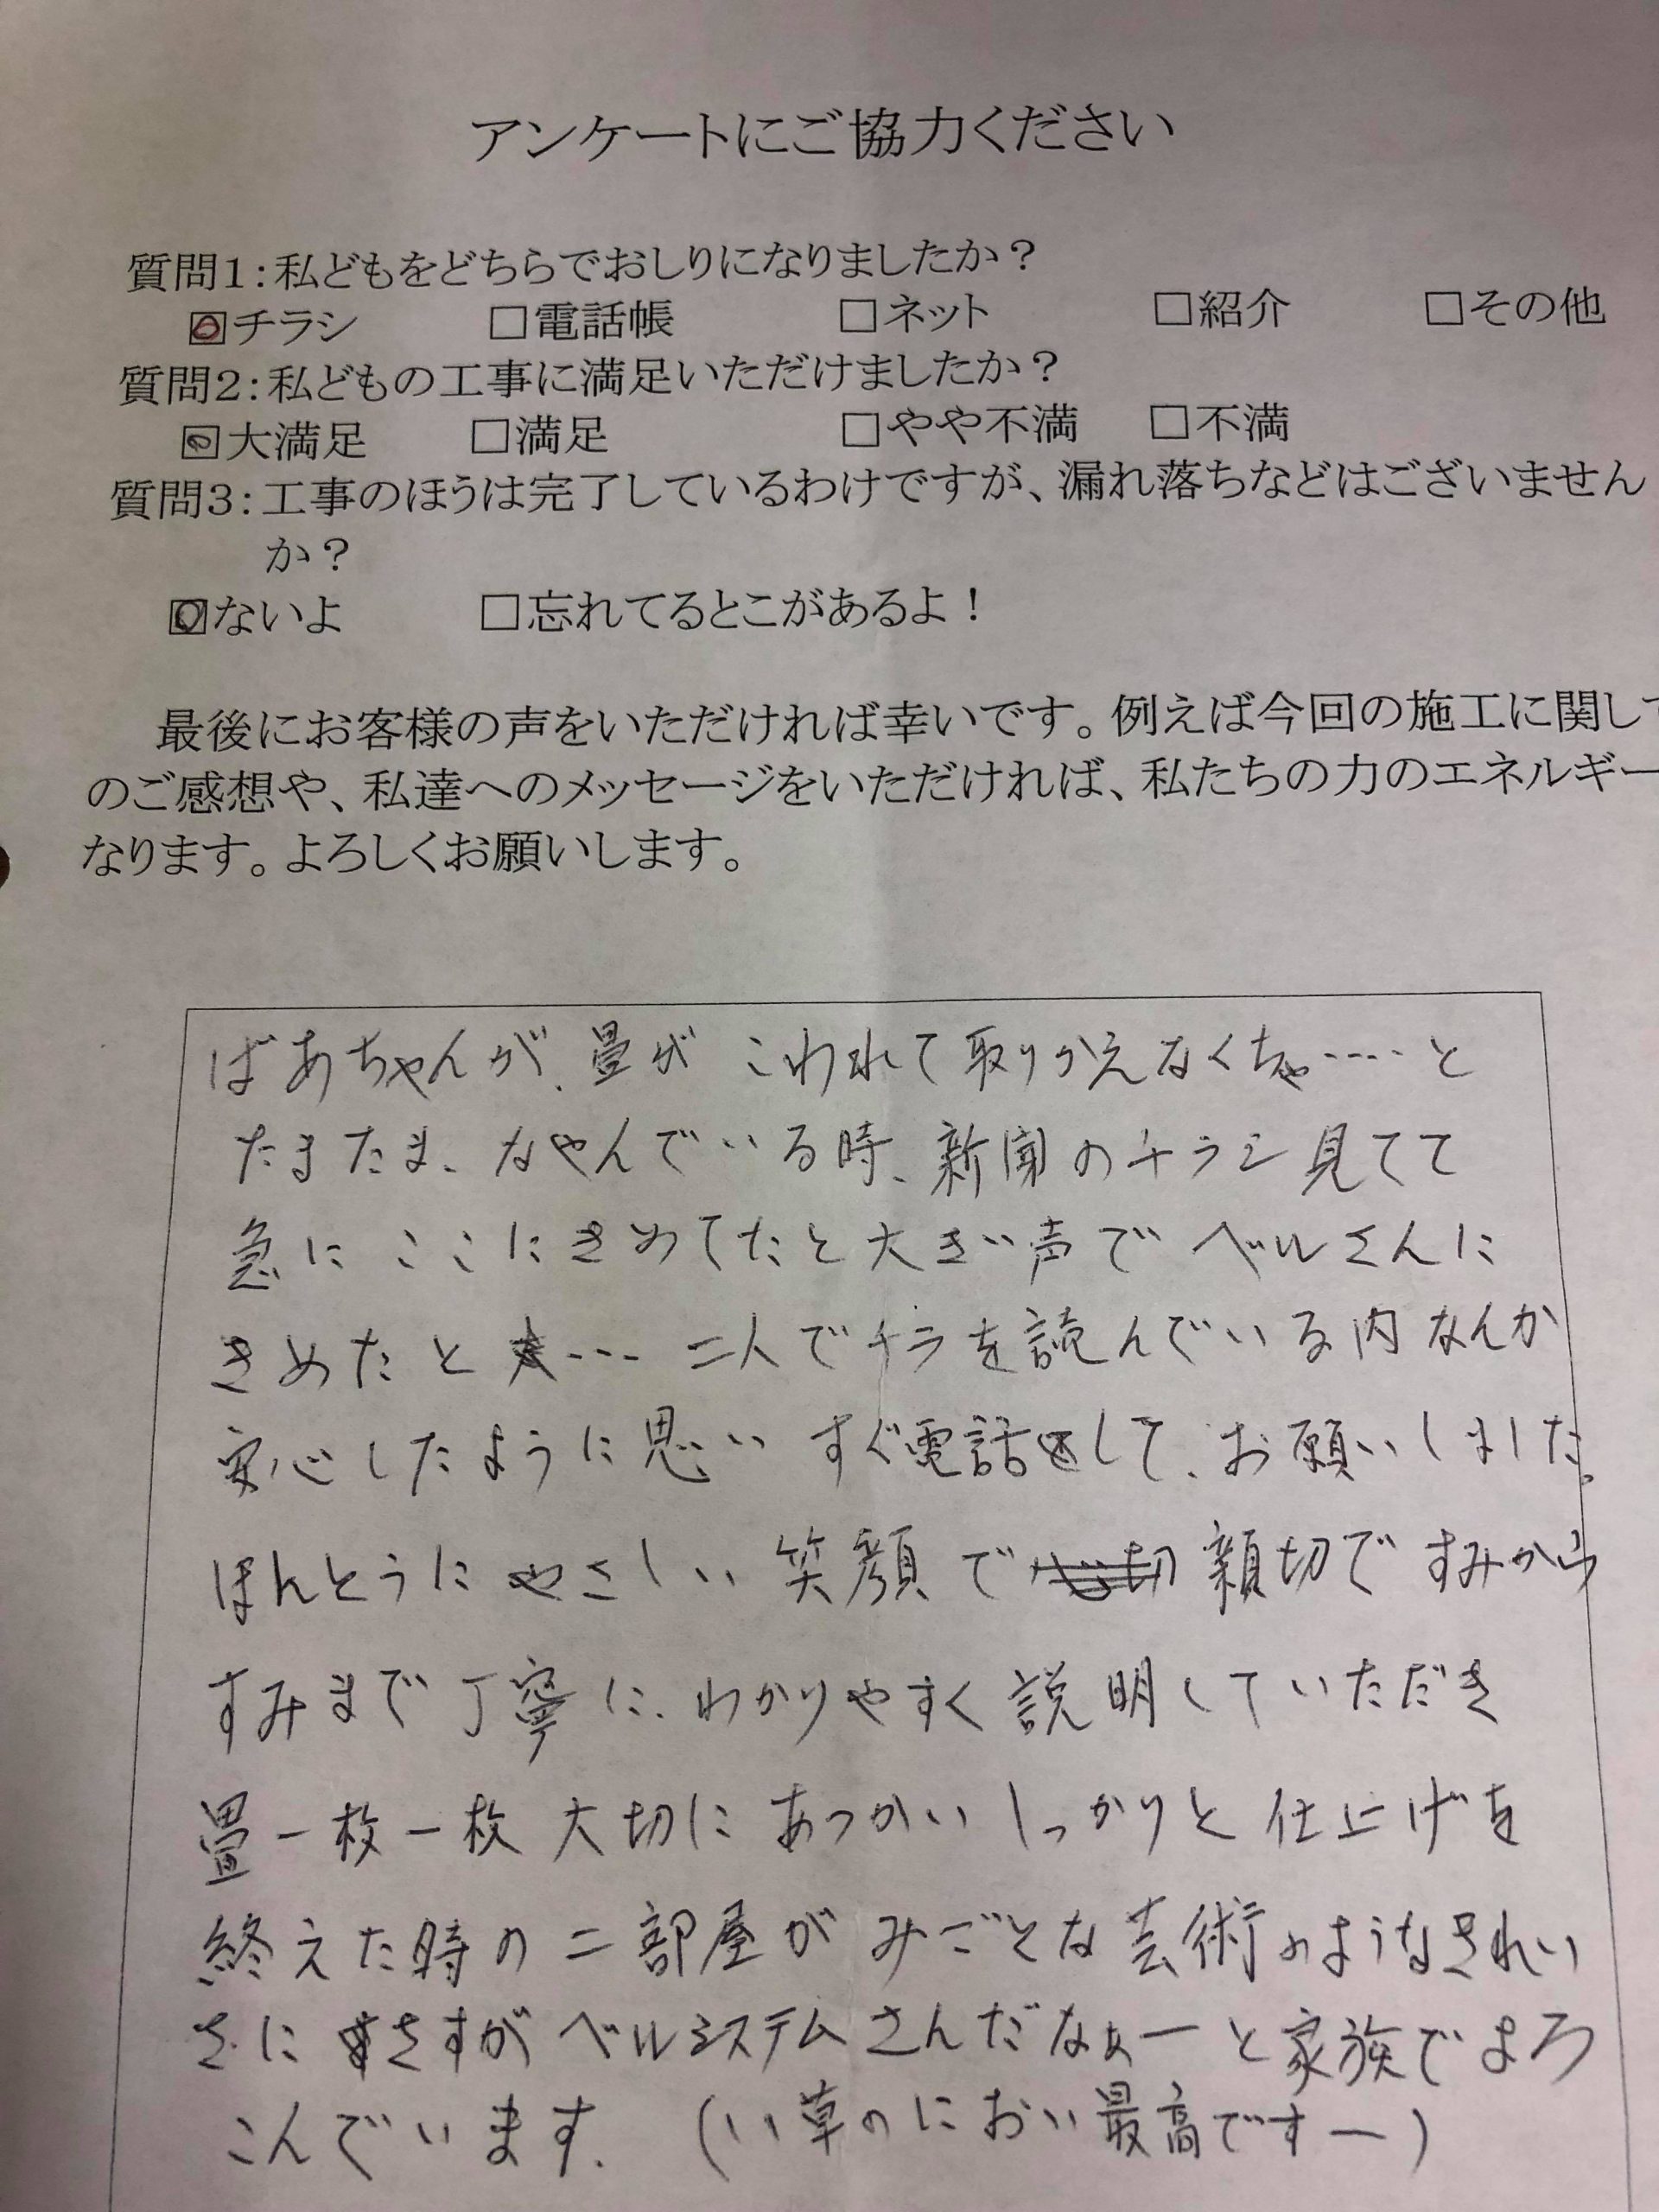 アンケートにご協力ください
質問1:私どもをどちらでおしりになりましたか？
☑チラシ □電話帳 □ネット □紹介 □その他
質問2:私どもの工事に満足いただけましたか？
☑大満足 □満足 □やや不満 □不満
質問3:工事のほうは完了しているわけですが、漏れ落ちなどはございません
か？
☑ないよ □忘れてるとこがあるよ！
最後にお客様の声をいただければ幸いです。例えば今回の施工に関して
のご感想や、私達へのメッセージをいただければ、私たちの力のエネルギー
なります。よろしくお願いします。
ばあちゃんが、畳が こわれて取りかえなくちゃ‥‥と
たまたま、なやんでいる時、新聞のチラシ見てて
急に ここにきめてたと大きい声で ベルさんに
きめたと … 二人でチラを読んでいる内なんか
安心したように思い すぐ電話して、お願いしました。
ほんとうに やさしい 笑顔で 親切で すみから
すみまで丁寧に、わかりやすく説明していただき
畳一枚一枚 大切に あつかい しっかりと 仕上げを
終えた時の二部屋が みごとな芸術のようなきれい
さに さすが ベルシステムさんだなぁーと家族でよろ
こんでいます。 (い草のにおい最高ですー)